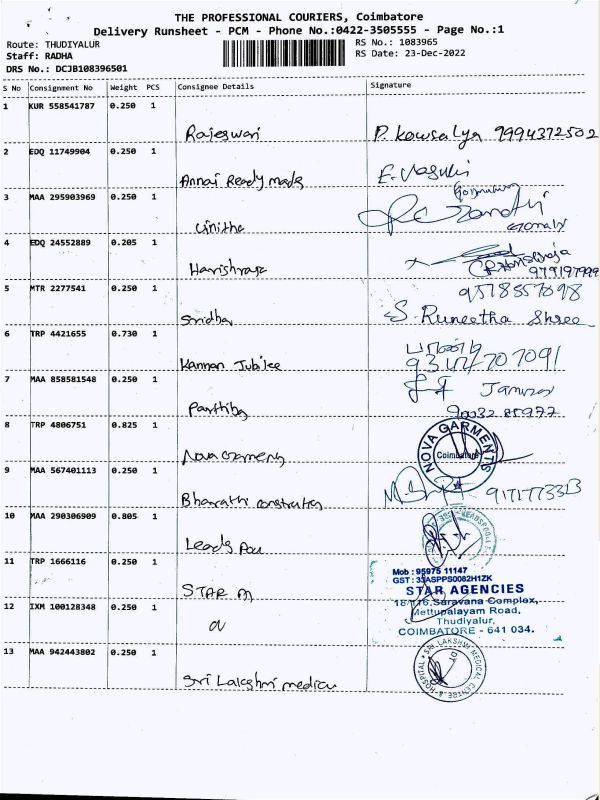 THE PROFESSIONAL COURIERS, Coimbatore
Delivery Runsheet - PCM - Phone No.:0422-3505555 - Page No.:1
Route: THUDIYALUR
RS No.: 1083965
Staff: RADHA
RS Date: 23-Dec-2022
DRS No.: DCJB108396501
S No Consignment No Weight PCS Consignee Details Signature
1 KUR 558541787 0.250 1
Rajeswari P. Kowsalya 9994372502
2 EDQ 11749904 0.250 1
Annai Ready made E. Vasuki
3 MAA 295903969 0.250 1
Vinitha
4 EDQ 24552889 0.205 1
Harishraja
5 MTR 2277541 0.250 1 9578557098
Sridhar S. Runeetha Shree
6 TRP 4421655 0.730 1
Kannan Jubilee
7 MAA 858581548 0.250 1
Parthiba 90032 85977
8 TRP 4806751 0.825 1
NOVA GARMENTS
Coimbatore
Nova Garments
9 MAA 567401113 0.250 1
Bharathi construction 9171773313
10 MAA 290306909 0.805 1
Leads Pou
11 TRP 1666116 0.250 1
Mob : 95975 11147
GST : 33ASPPS0082H1ZK
STAR AGENCIES
STAR A
12 IXM 100128348 0.250 1
18/116, Saravana Complex,
Mettupalayam Road,
Thudiyalur,
COIMBATORE - 641 034.
13 MAA 942443802 0.250 1
SRI LAKSHMI MEDICAL CENTRE & HOSPITAL
Sri Lakshmi medical